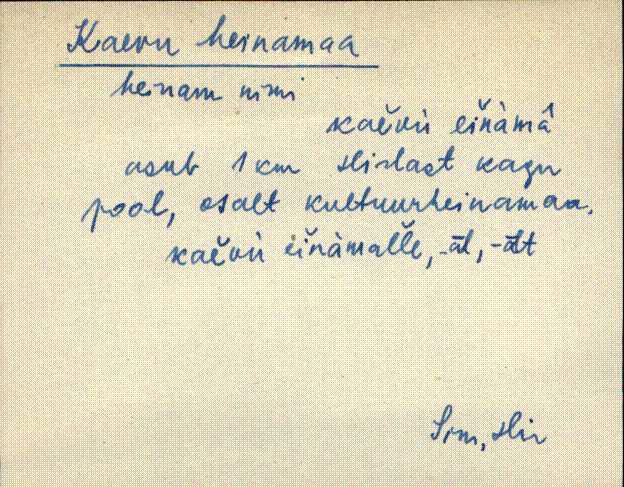 Kaevu heinamaa
heinam nimi
kaĕvù eĭnàmâ
asub 1 km Hislast kagu
pool, osalt kultuurheinamaa.
kaĕvù eĭnàmalle, -āl, -ālt